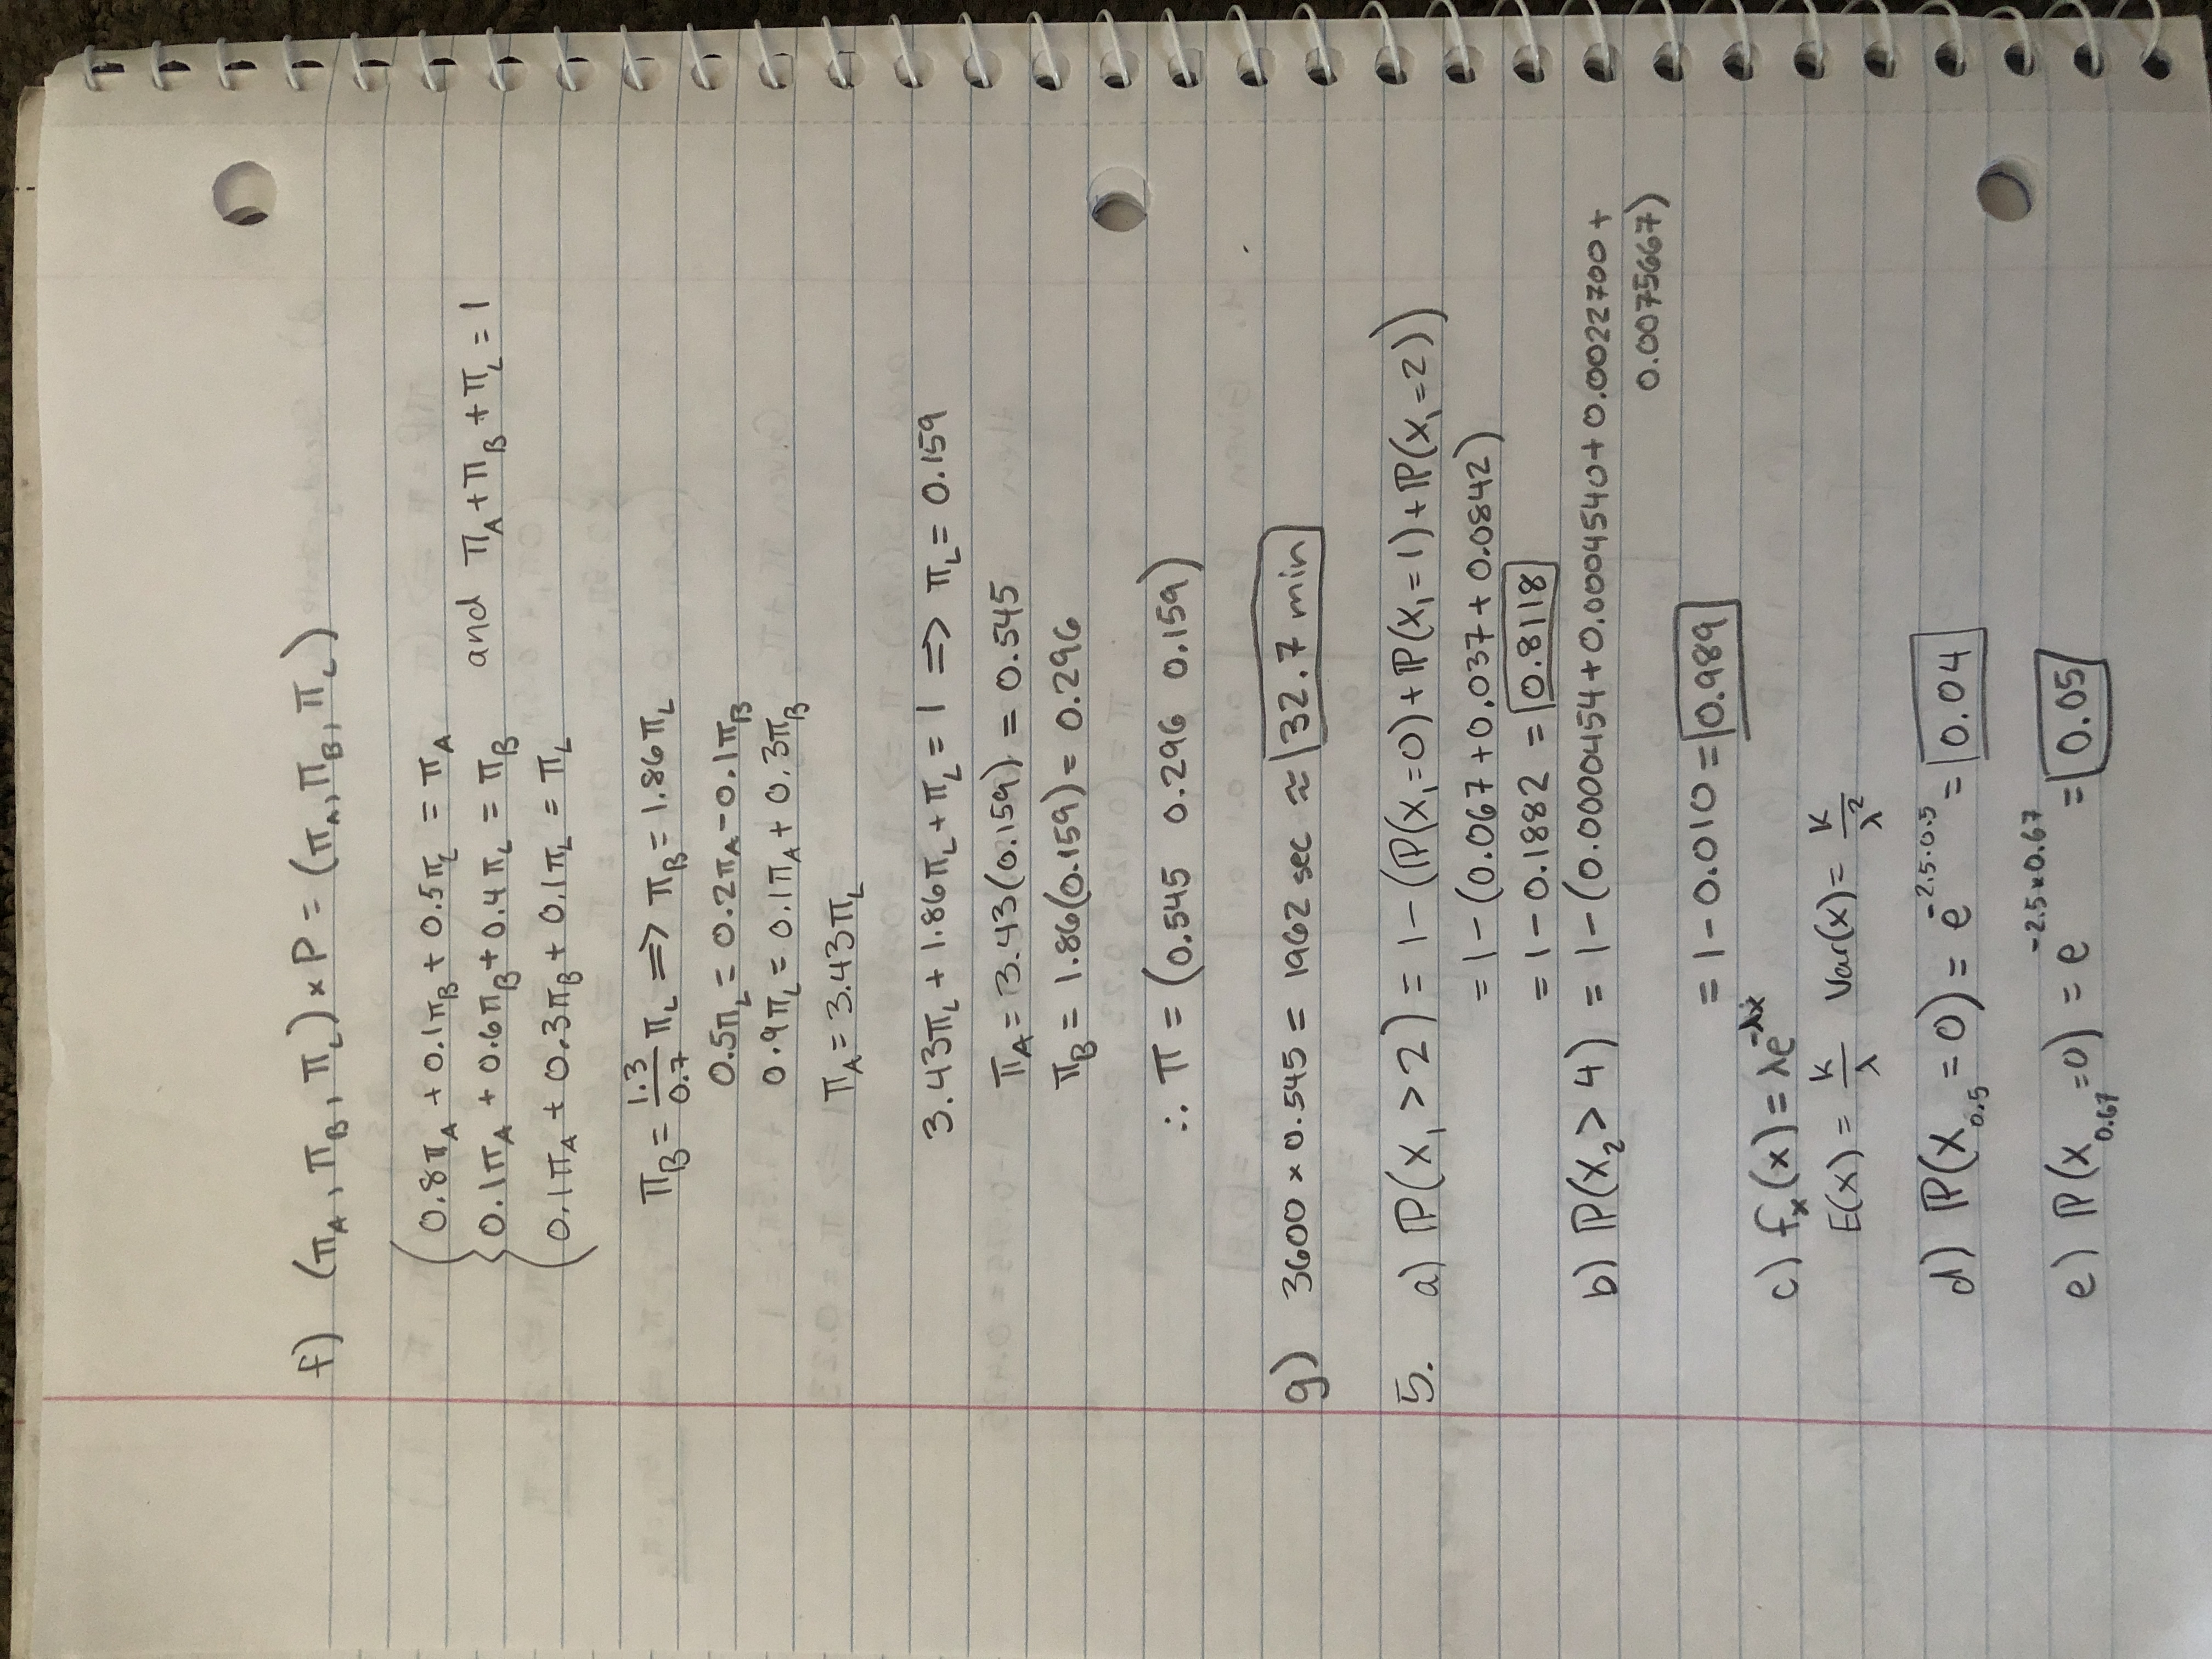 f) (π_A, π_B, π_L) × P = (π_A, π_B, π_L)
0.8π_A + 0.1π_B + 0.5π_L = π_A
0.1π_A + 0.6π_B + 0.4π_L = π_B and π_A + π_B + π_L = 1
0.1π_A + 0.3π_B + 0.1π_L = π_L
π_B = 1.3/0.7 π_L ⟹ π_B = 1.86π_L
0.5π_L = 0.2π_A − 0.1π_B
0.9π_L = 0.1π_A + 0.3π_B
π_A = 3.43π_L
3.43π_L + 1.86π_L + π_L = 1 ⟹ π_L = 0.159
π_A = 3.43(0.159) = 0.545
π_B = 1.86(0.159) = 0.296
∴ π = (0.545 0.296 0.159)
g) 3600 × 0.545 = 1962 sec ≈ 32.7 min
5. a) ℙ(X_1 > 2) = 1 − (ℙ(X_1 = 0) + ℙ(X_1 = 1) + ℙ(X_1 = 2))
= 1 − (0.067 + 0.037 + 0.0842)
= 1 − 0.1882 = 0.8118
b) ℙ(X_2 > 4) = 1 − (0.0000454 + 0.0004540 + 0.0022700 +
0.0075667)
= 1 − 0.010 = 0.989
c) f_x(x) = λe^{-λx}
E(x) = K/λ Var(x) = K/λ^2
d) ℙ(X_{0.5} = 0) = e^{-2.5·0.5} = 0.04
e) ℙ(X_{0.67} = 0) = e^{-2.5×0.67} = 0.05